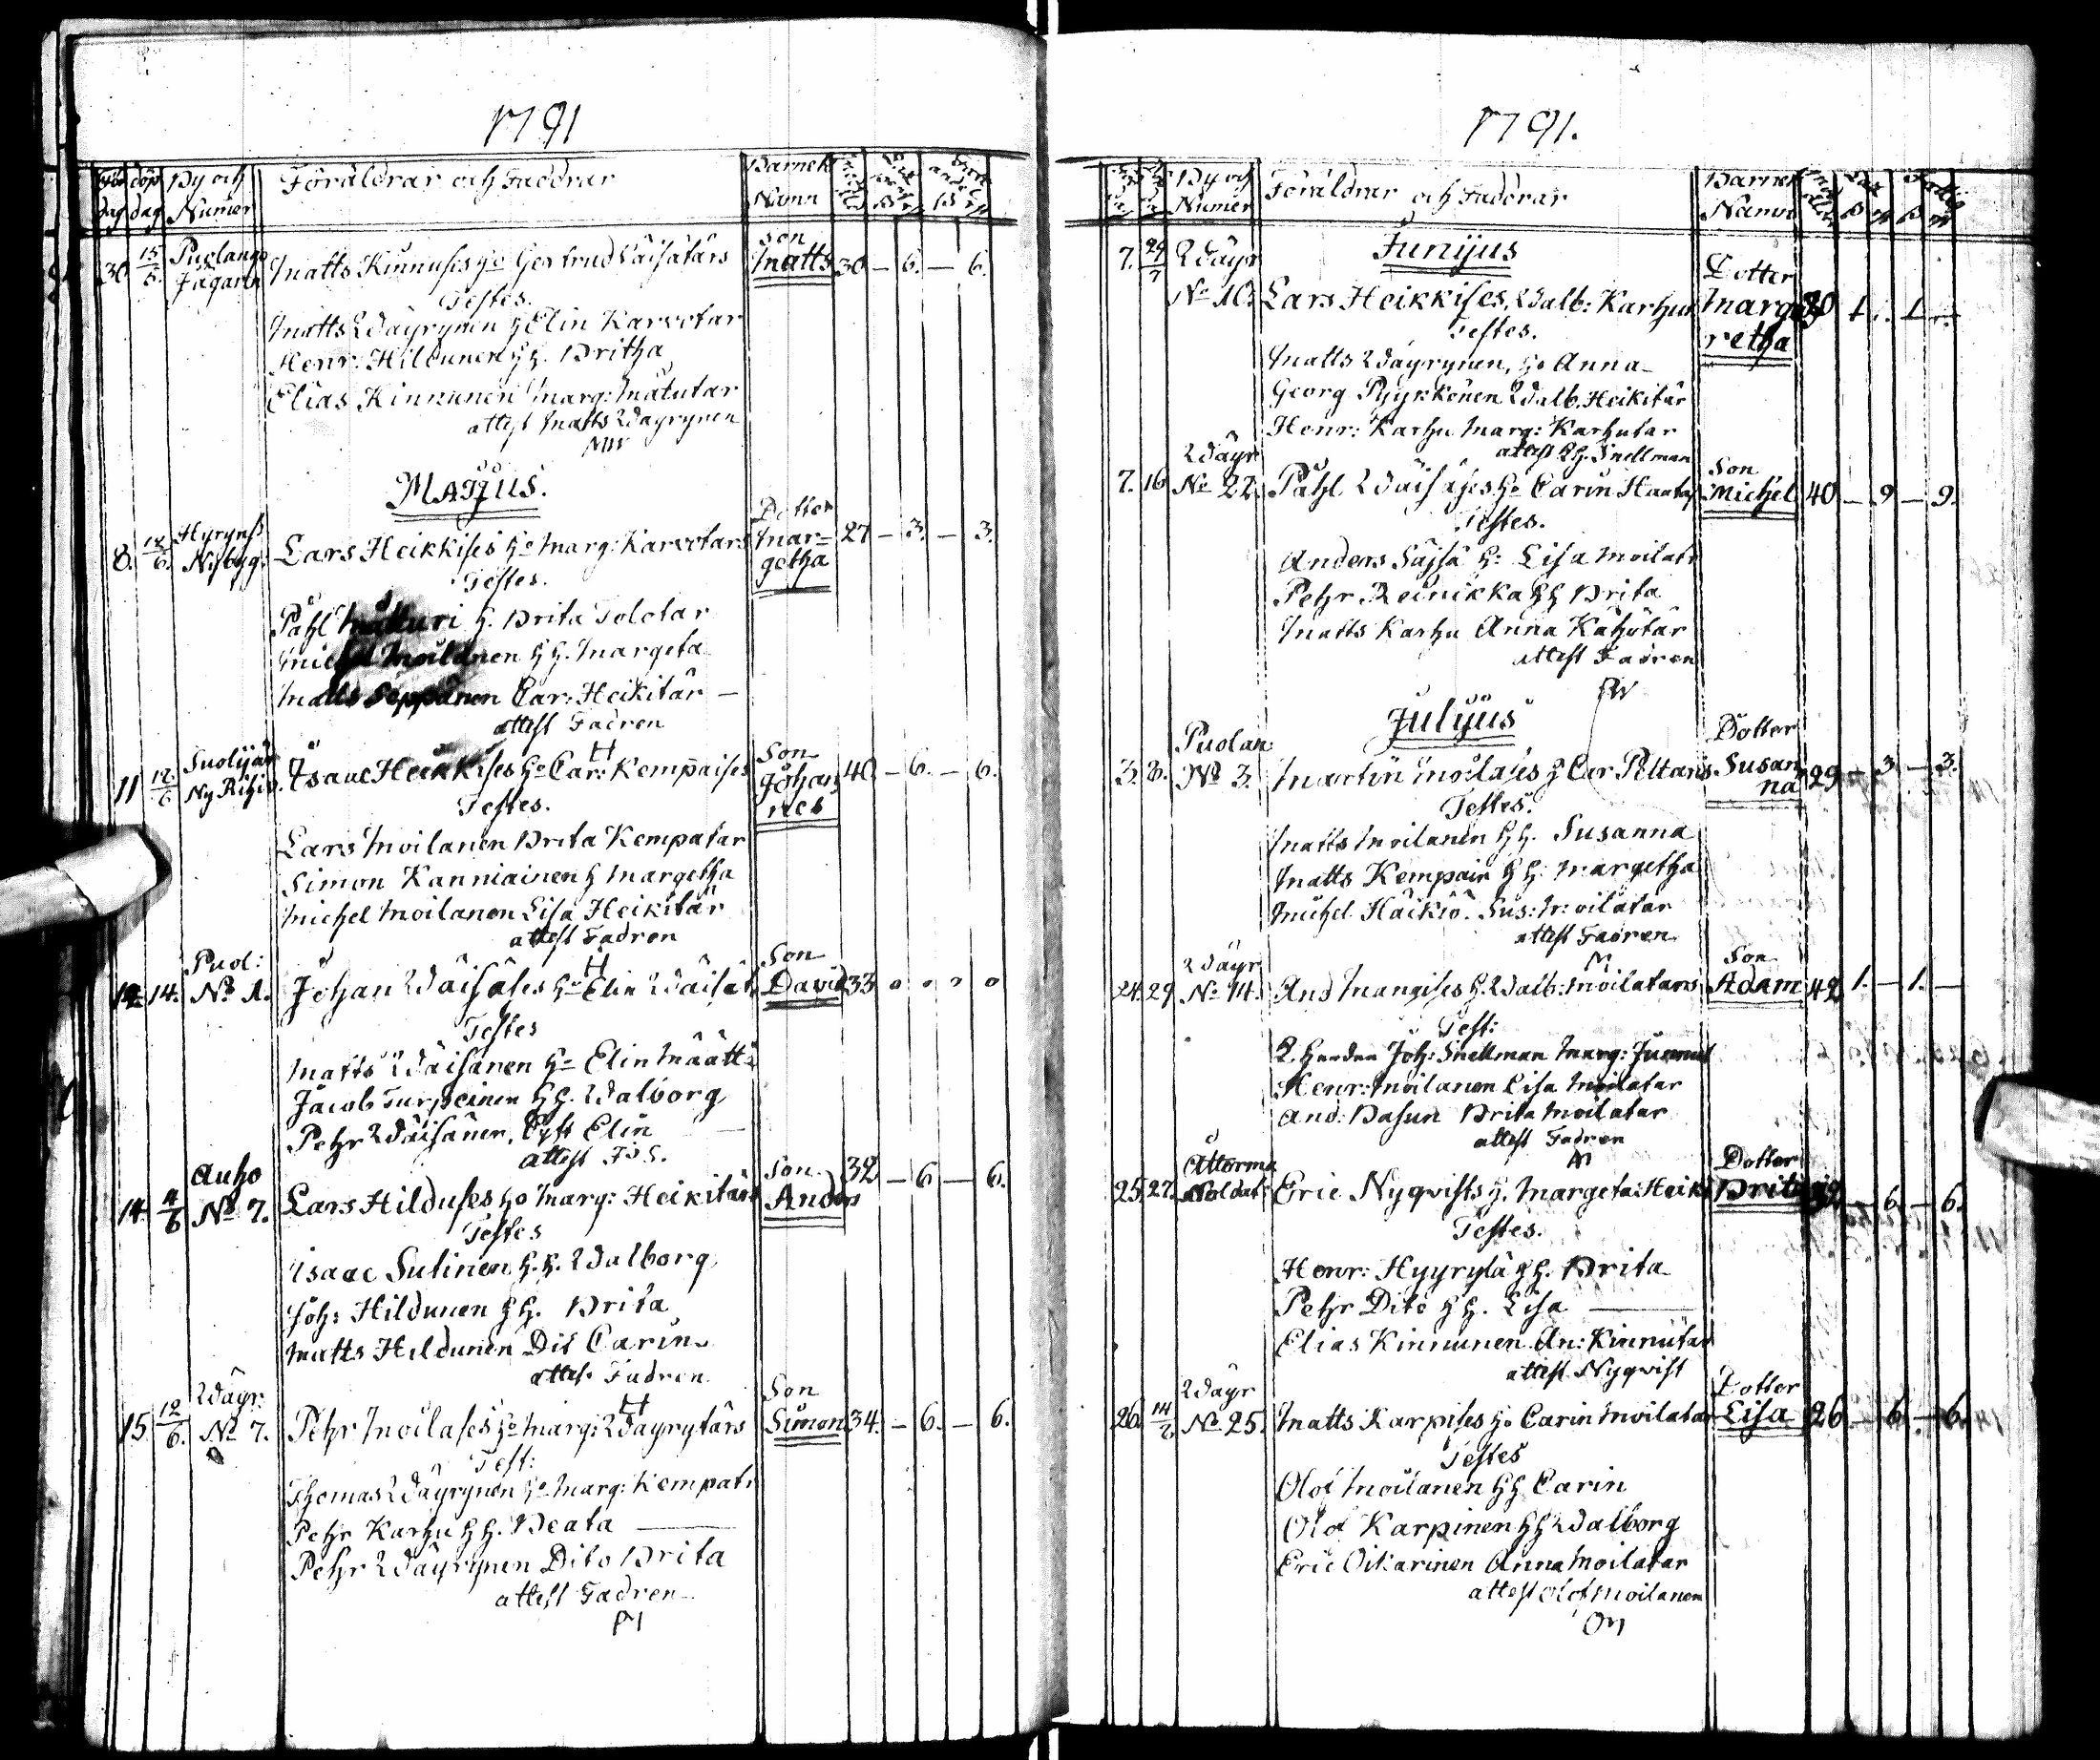 1791
Föd dag döp dag By och Numer Föräldrar och Faddrar Barnets Namn
30 15/5. Puolango Jägaren Matts Kinnuses ho Gertrud Väisätärs Son Matts 30 — 6. — 6.
Testes.
Matts Wäyrynen h Elin Karvotar
Henr: Hildunen h h. Britha
Elias Kinnunen Marg: Mätutar
attest Matts Wäyrynen
MW
Majus.
8. 12/6. Hyryns Nybyg: Lars Heikkises ho Marg: Karvotars Dotter Mar=getha 27 — 3. — 3.
Testes.
Påhl h. Brita Tolotar
Michel Moilanen h h. Margeta
Matts Seppänen Car: Heikitär —
attest Fadren
H
11 12/6 Suolijär Ny Isaac Heikkises ho Car: Kempaises Son Johannes 40 — 6. — 6.
Testes.
Lars Moilanen Brita Kempatar
Simon Kanniainen h Margetha
Michel Moilanen Lisa Heikitär
attest Fadren
H
14. Puol: No 1. Johan Wäisäses ho Elin Wäisät Son David 33 0 0 0 0
Testes
Matts Wäisänen ho Elin Määtt:
Jacob Turpeinen h h. Walborg
Pehr Wäisänen, Elin
attest
14. 4/6 Auho No 7. Lars Hilduses ho Marg: Heikitärs Son Anders 32 — 6 — 6.
Testes
Isaac Sutinen h. h. Walborg
Joh: Hildunen h h. Brita
Matts Hildunen Dit Carin
attest Fadren
H
15. 12/6. Wäyr: No 7. Pehr Moilases ho Marg: Wäyrytärs Son Simon 34. — 6. — 6.
Test:
Thomas Wäyrynen ho Marg: Kempatr
Pehr Karhu h h. Beata —
Pehr Wäyrynen Dito Brita
attest Fadren
PM
1791.
By och Numer Föräldrar och Faddrar Barnets Namn
Junijus
7. 29/7 Wäyr No 10. Lars Heikkises, Walb: Karhut Dotter Margretha 1 . 1 —
Testes.
Matts Wäyrynen, ho Anna
Georg Pyykkönen Walb. Heikitär
Henr: Karhu Marg: Karhutar
attest Snellman
7. 16 Wäyr No 22. Påhl Wäisäses ho Carin Haataj Son Michel 40 — 9 — 9.
Testes.
Anders Säjsä h: Lisa Moilatr
Pehr Reinikka h h Brita
Matts Karhu Anna Kähötär
attest Fadren
PW
Julijus
3. 8. Puolan: No 3. Martin Moilases h Car Peltars Dotter Susanna 29 — 3 — 3.
Testes.
Matts Moilanen h h. Susanna
Matts Kempain h h: Margetha
Michel Häikiö. Sus: Moilatar
attest Fadren
M
24. 29 Wäyr No 14. And Mangises h. Walb: Moilatars Son Adam 42 1. — 1. —
Test:
Joh: Snellman Marg:
Henr: Moilanen Lisa Moilatar
And: Basun Brita Moilatar
attest Fadren
M
25. 27. Soldat: Eric Nyqvists h. Margeta Heik Dotter Brita — 6 — 6.
Testes.
Henr: Hyyrylä h h. Brita
Pehr Dito h h. Lisa —
Elias Kinnunen An: Kinnutar
attest Nyqvist
26. 14/7 Wäyr No 25. Matts Karpises ho Carin Moilatar Dotter Lisa 26 — 6 — 6.
Testes
Olof Moilanen h h Carin
Olof Karpinen h h Walborg
Eric Oikarinen Anna Moilatar
attest Olof Moilanen
OM